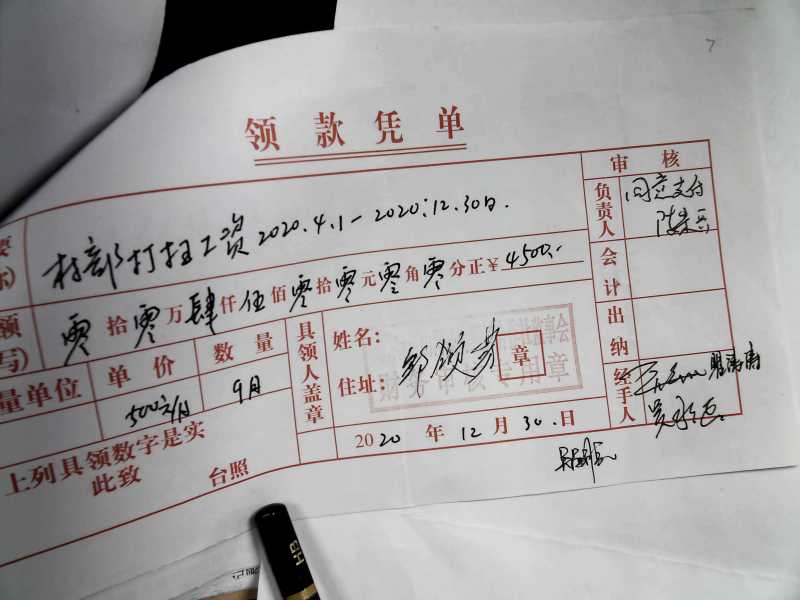 7
领款凭单
审核
要 村部打扫工资2020.4.1-2020.12.30日.
负责人 同意支付
额 零拾零万肆仟伍佰零拾零元零角零分正¥4500.-
写)
会计
量单位 单价 数量
500元/月 9月
具领人盖章
姓名:
住址:
邹 芳
章
财务审核专用章
出纳
经手人
2020年12月30.日
上列具领数字是实
此致 台照
HB